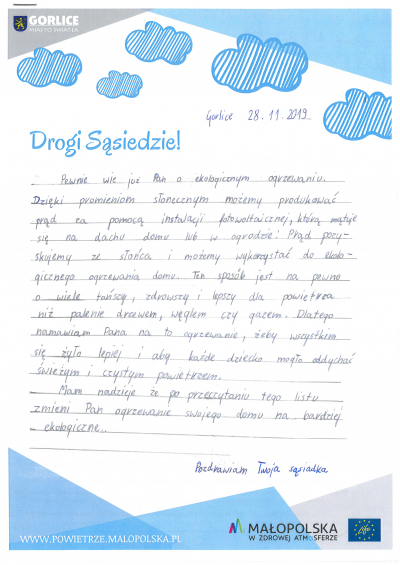 GORLICE
MIASTO ŚWIATŁA
Gorlice 28.11.2019
Drogi Sąsiedzie!
Pewnie wie już Pan o ekologicznym ogrzewaniu.
Dzięki promieniom słonecznym możemy produkować
prąd za pomocą instalacji fotowoltaicznej, którą
się na dachu domu lub w ogrodzie! Prąd pozy-
skujemy ze słońca i możemy wykorzystać do ekolo-
gicznego ogrzewania domu. Ten sposób jest na pewno
o wiele tańszy, zdrowszy i lepszy dla powietrza
niż palenie drzewem, węglem czy gazem. Dlatego
namawiam Pana na to ogrzewanie, żeby wszystkim
się żyło lepiej i aby każde dziecko mogło oddychać
świeżym i czystym powietrzem.
Mam nadzieję że po przeczytaniu tego listu
zmieni Pan ogrzewanie swojego domu na bardziej
ekologiczne.
Pozdrawiam Twoja sąsiadka
WWW.POWIETRZE.MALOPOLSKA.PL
MAŁOPOLSKA
W ZDROWEJ ATMOSFERZE
Life